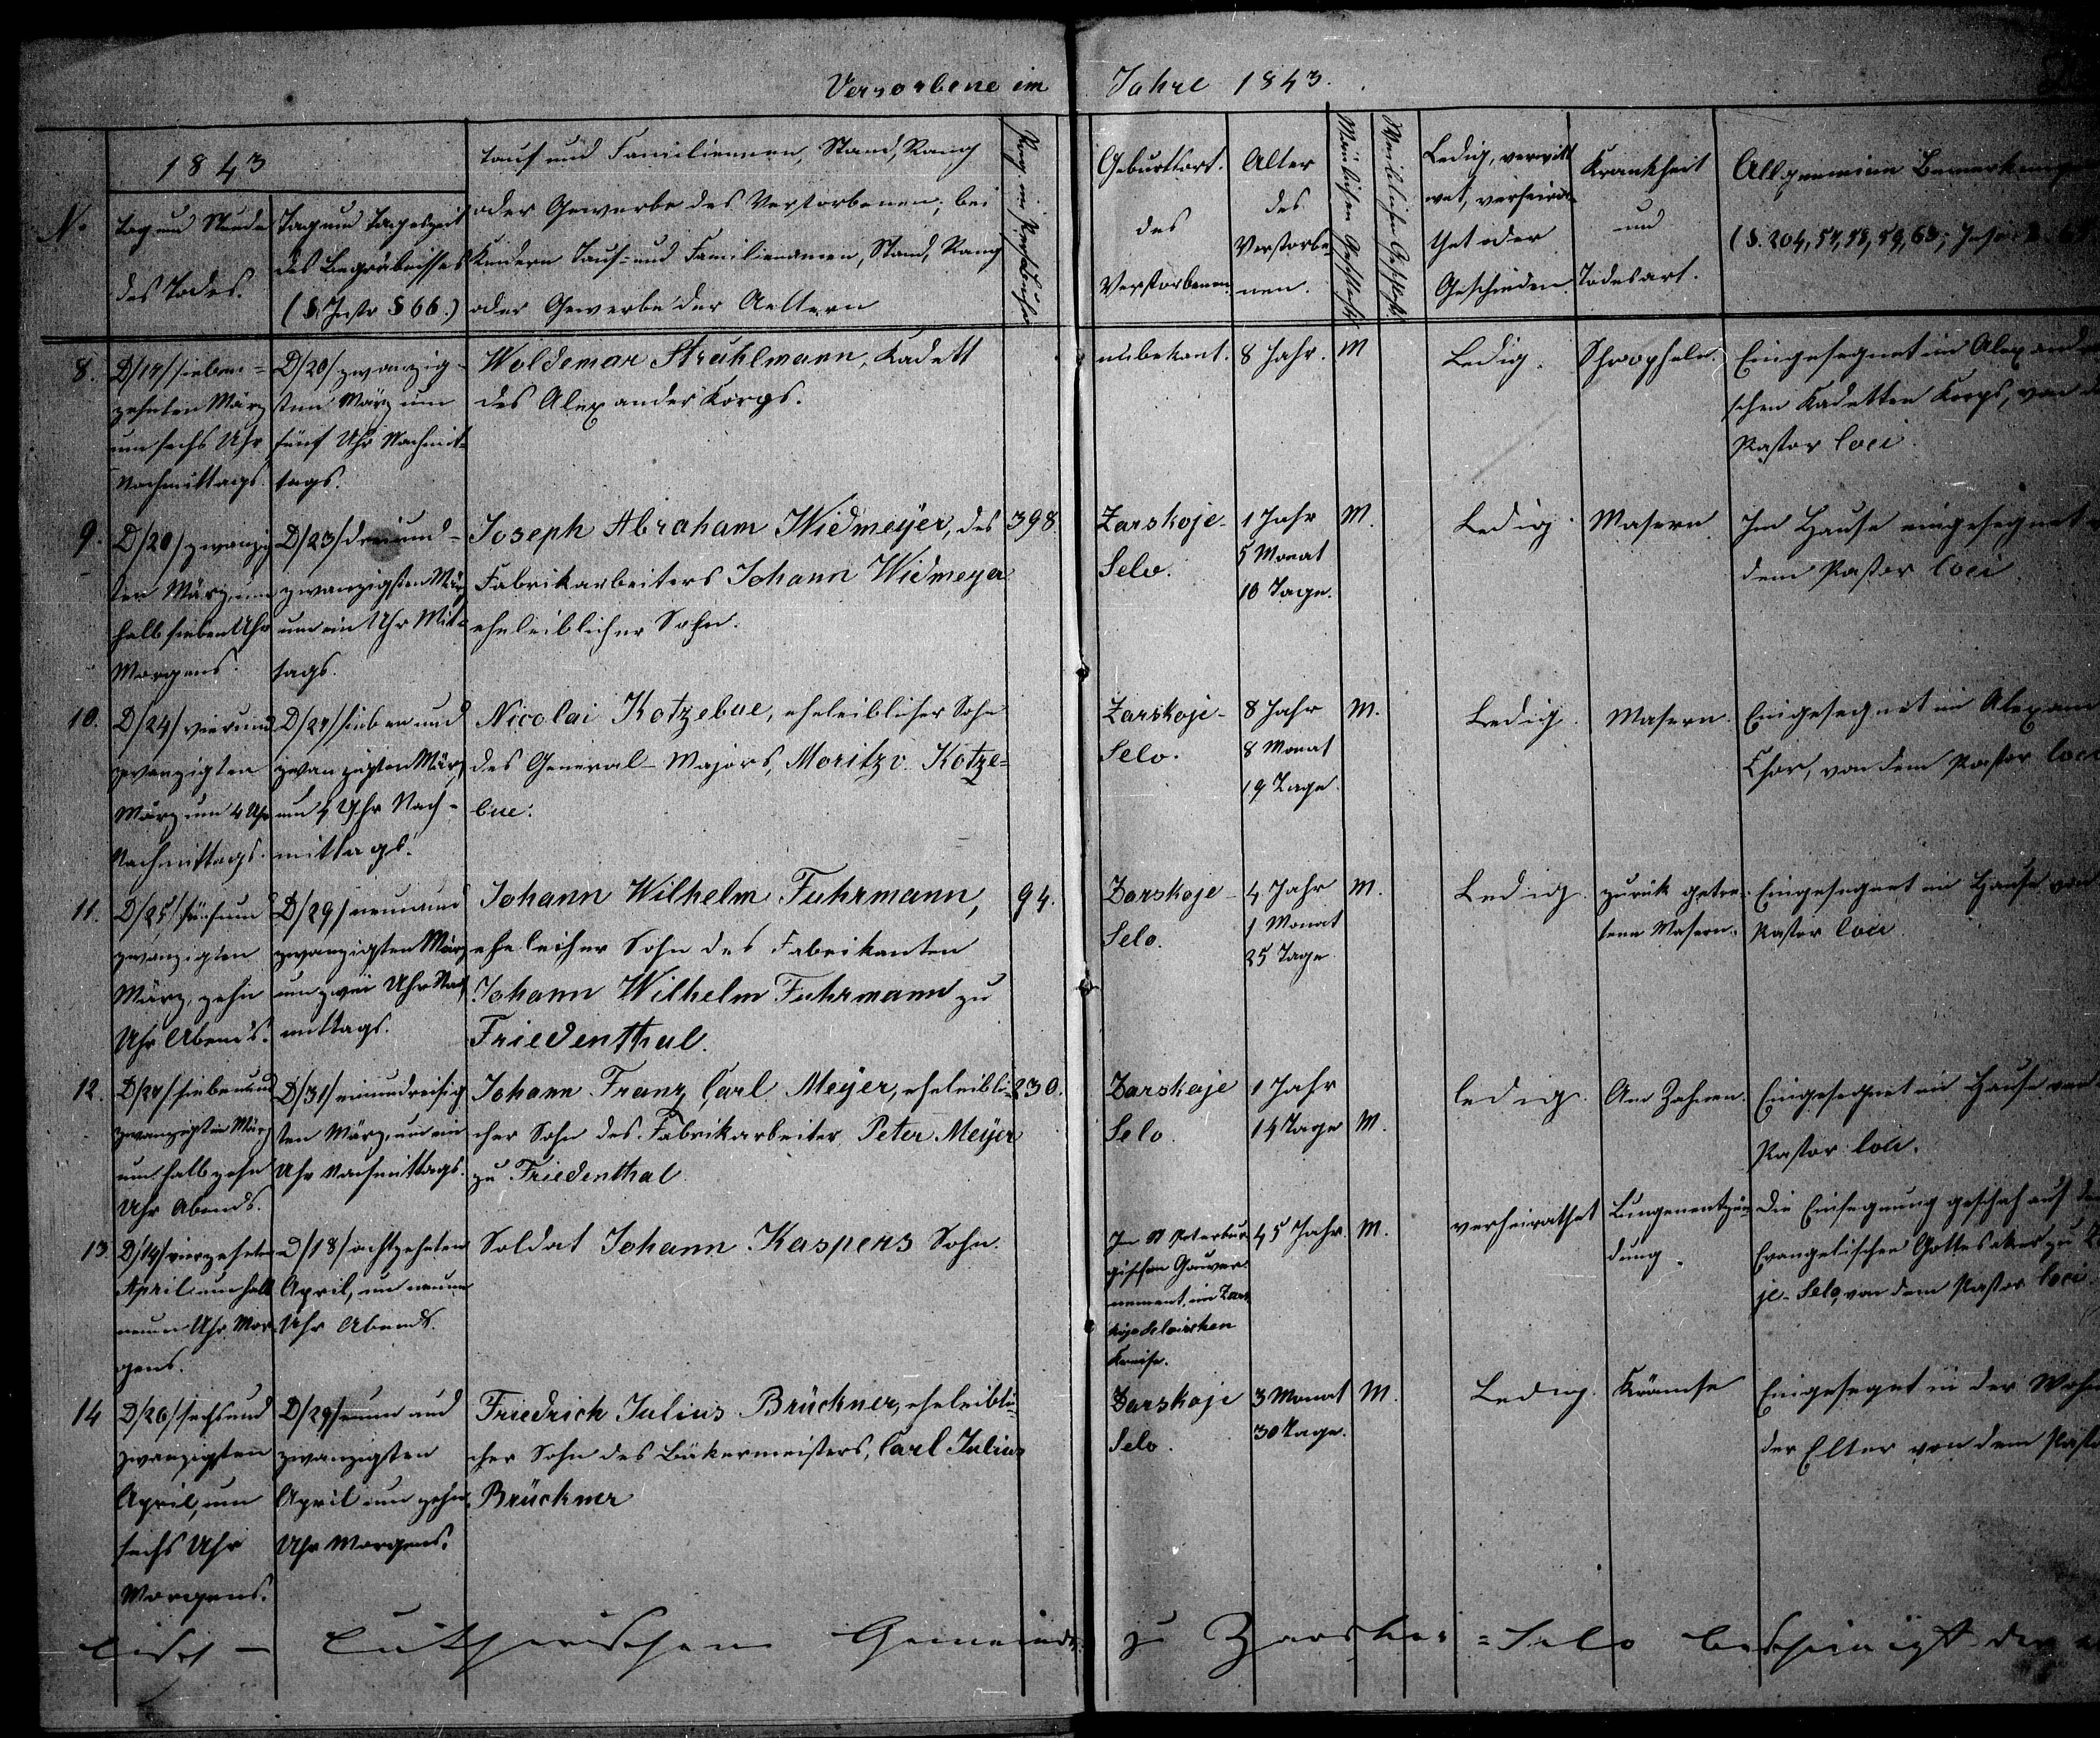 Versorbene im Jahre 1843.
1843
No
Tag und Stunde
des Todes.
Tag und Tageszeit
des Begräbnisses
(S. Instr § 66.)
Tauf und Familiennen, Stand, Rang
oder Gewerbe des Verstorbenen; bei
Kindern Tauf- und Familienamen, Stand, Rang
oder Gewerbe der Aeltern
Geburtsort.
des
Verstorbenen.
Alter
des
Verstorbe-
nen.
Männlichen Geschlechts
Weiblichen Geschlechts
Ledig, verwitt
wet, verheira-
thet oder
Geschieden.
Krankheit
und
Todesart.
Allgemeine Bemerkungen
8.
D/17/ sieben-
zehnten März
um sechs Uhr
Nachmittags.
D/20/ zwanzig-
sten März um
fünf Uhr Nachmit-
tags.
Woldemar Struhlmann, Kadett
des Alexander Korps.
unbekant.
8 Jahr.
M
Ledig.
Skropheln.
Eingesegnet im Alexand
schen Kadetten Korps, von
Pastor loci.
9.
D/20/ zwanzig
ten März, um
halb sieben Uhr
Morgens.
D/23/ dreiund-
zwanzigsten März
um ein Uhr Mit-
tags.
Joseph Abraham Widmeyer, des
Fabrikarbeiters Johann Widmeyer
eheleiblicher Sohn.
398.
Zarskoje-
Selo.
1 Jahr
5 Monat
10 Tage.
M.
Ledig.
Masern
Im Hause eingesegnet
dem Pastor loci
10.
D/24/ vierund
zwanzigten
März um 4 Uhr
Nachmittags.
D/27/ sieben und
zwanzigten März
um 4 Uhr Nach-
mittags.
Nicolai Kotzebue, eheleiblicher Sohn
des General-Majors, Moritz v. Kotze-
bue.
Zarskoje-
Selo.
8 Jahr
8 Monat
19 Tage.
M.
Ledig.
Masern.
Eingesegnet im Alexan
Chor, von dem Pastor loci
11.
D/25/ fünfund
zwanzigten
März, zehn
Uhr Abends.
D/29/ neunund
zwanzigsten März
um zwei Uhr Nach
mittags.
Johann Wilhelm Fuhrmann,
eheleicher Sohn des Fabrikanten
Johann Wilhelm Fuhrmann zu
Friedenthal.
94.
Zarskoje-
Selo.
4 Jahr
1 Monat
25 Tage
M.
Ledig.
zurük getre-
tene Masern.
Eingesegnet im Hause von
Pastor loci
12.
D/27/ siebenund
zwanzigten März
um halb zehn
Uhr Abends.
D/31/ einundreisig
ten März, um ein
Uhr Nachmittags.
Johann Franz Carl Meyer, eheleibli-
cher Sohn des Fabrikarbeiter Peter Meyer
zu Friedenthal
230.
Zarskoje
Selo.
1 Jahr
14 Tage
M.
ledig.
Am Zahnen.
Eingesegnet im Hause von
Pastor loci.
13.
D/14/ vierzehnten
April um halb
neun Uhr Mor
gens.
D/18/ achtzehnten
April, um neun
Uhr Abends.
Soldat Johann Kaspers Sohn.
Im St Peterbur
gischen Gouver
nement, im Zars
Kreise.
45 Jahr.
M.
verheirathet
Lungenentzün-
dung.
Die Einsegnung geschah auf d
Evangelischen Gottesaker zu
je-Selo, von dem Pastor loci
14
D/26/ sechsund
zwanzigsten
April, um
sechs Uhr
Morgens.
D/29/ neun und
zwanzigsten
April um zehn
Uhr Morgens.
Friedrich Julius Brückner, eheleibli-
cher Sohn des Bäkermeisters, Carl Julius
Brückner
Zarskoje
Selo.
3 Monat
30 Tage.
M.
Ledig.
Krämfe
Eingesegnet in der Wohn
der Elter von dem Pasto
lisch - Lutherischen Gemeinde zu Zarskoe-Selo bescheinigt der